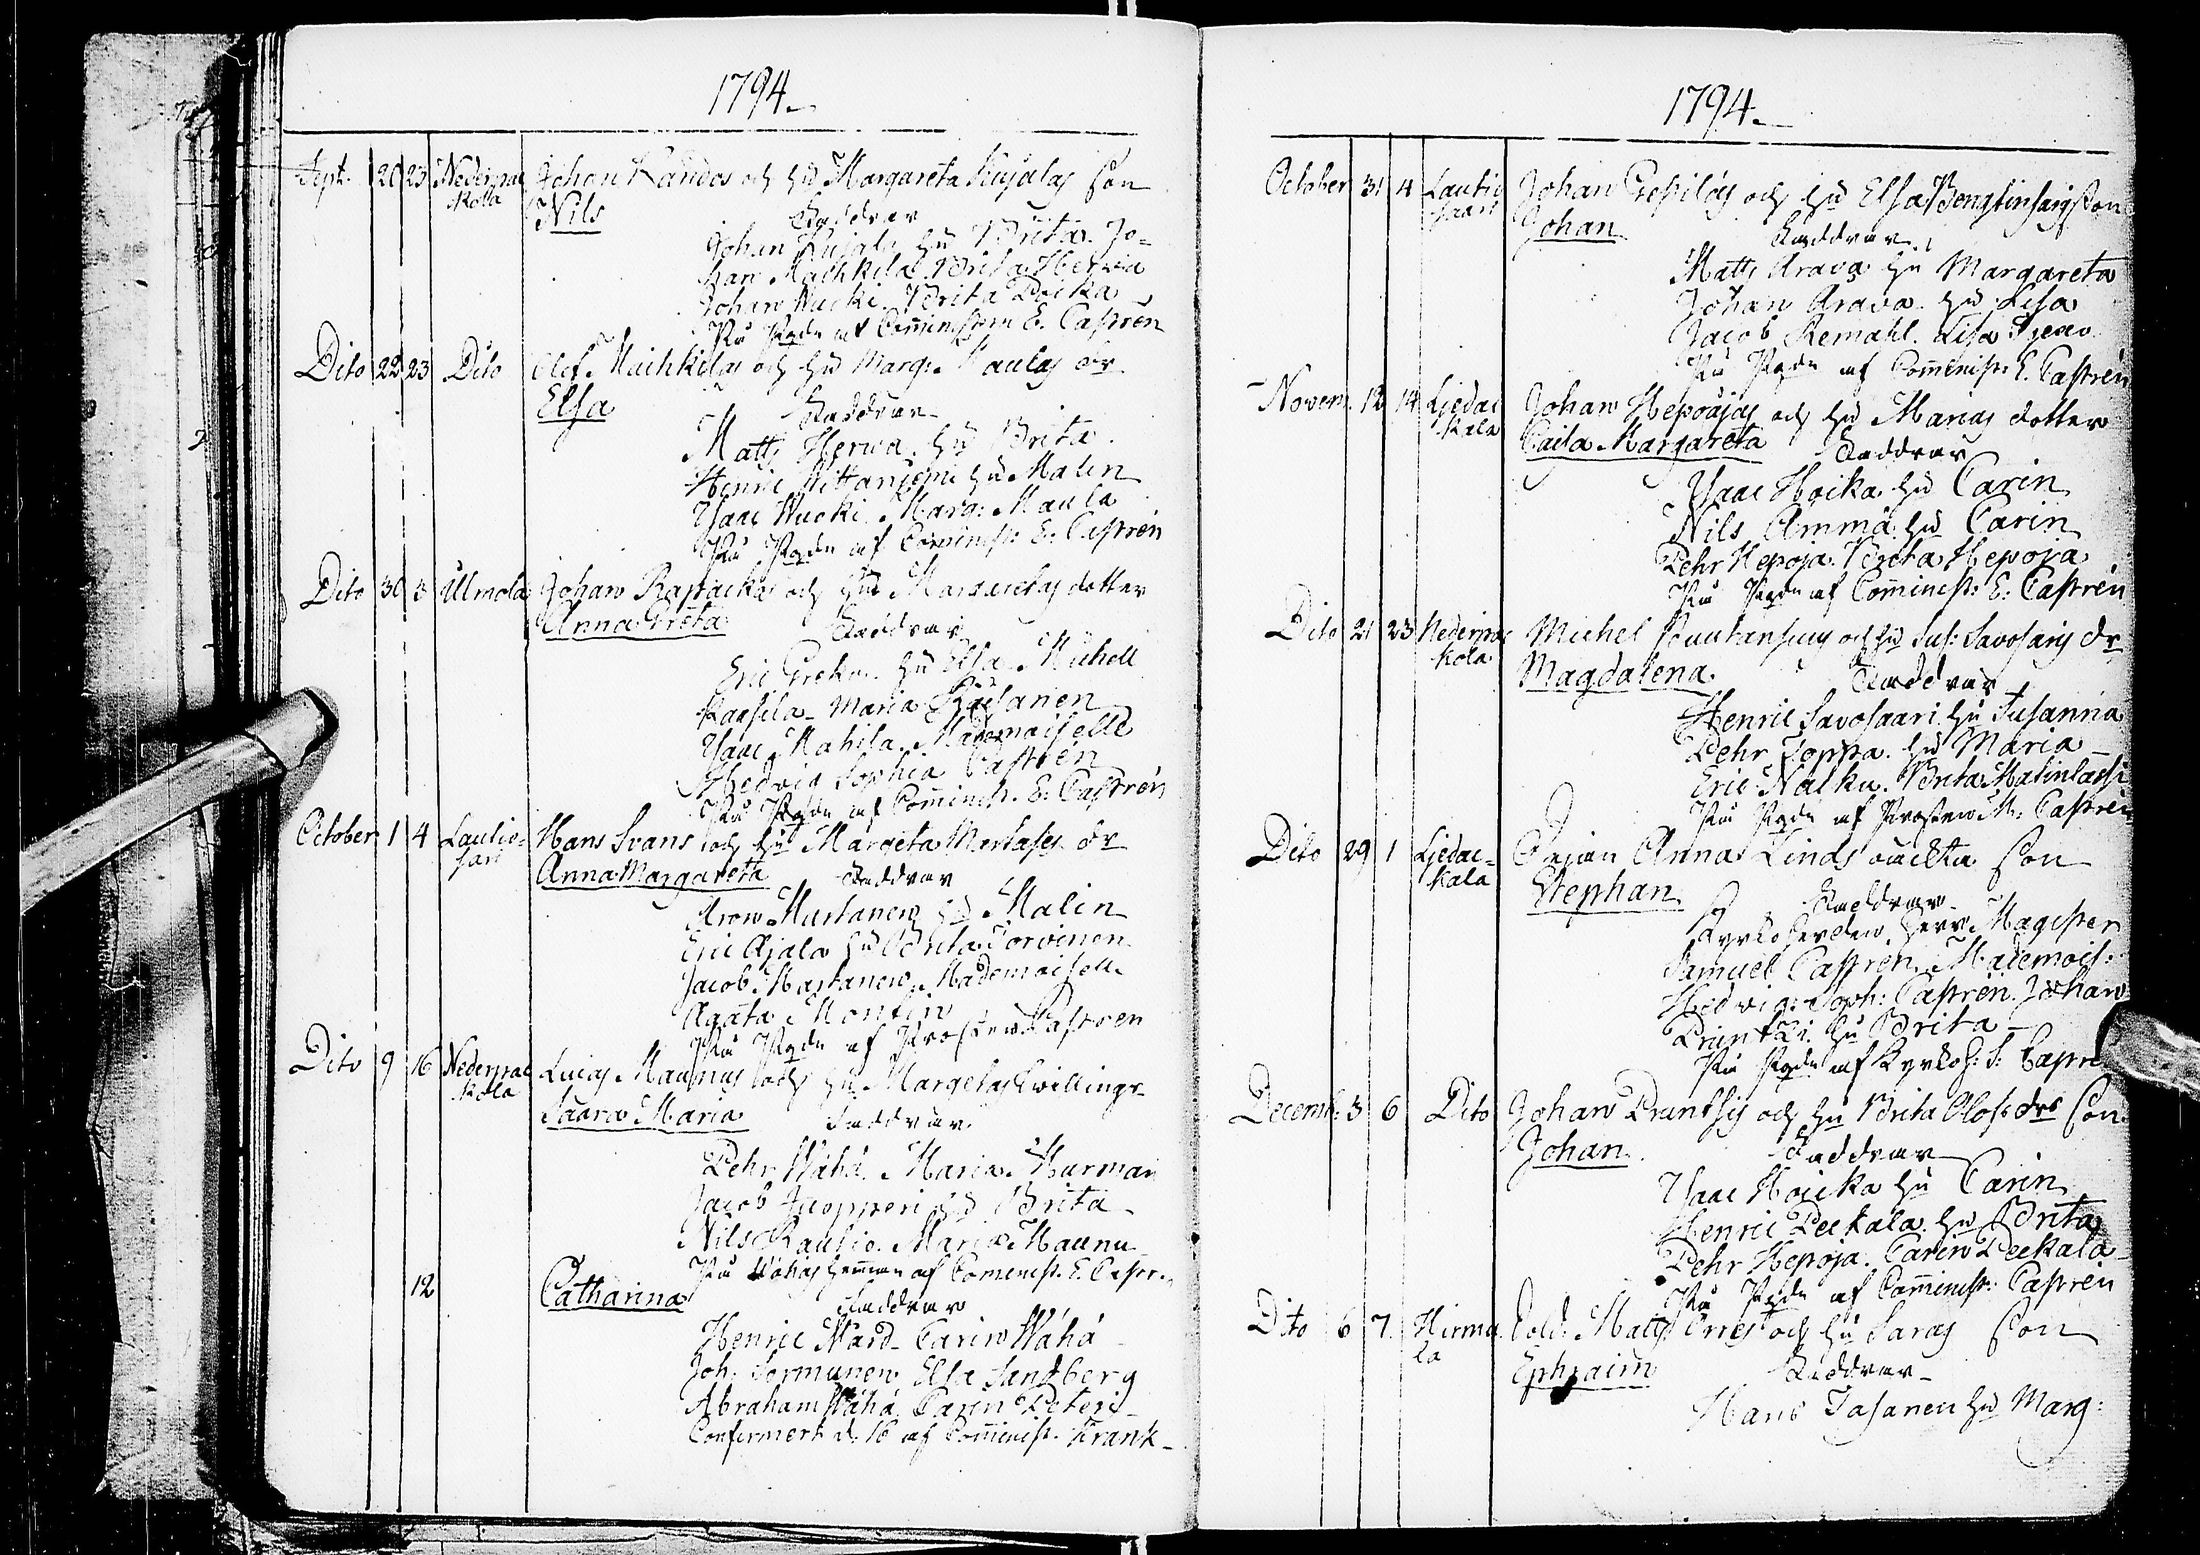 1794.
Sept. 20 23 Nederpaa Johan Kandos och hu Margareta Kujalas son
kola Nils Faddrar
Johan Kujala hu Brita. Jo=
han Maihkila Brita Herva
Johan Wuoki. Brita Poika
På Pgdn af Comministern E. Castrén
Dito 22 23 Dito Olof Maihkilas och hu Marg: Maulas dr
Elsa Faddrar
Matts Herva. hu Brita.
Henric Wittaniemi hu Malin
Isaac Wuoki. Marg: Maula
På Pgdn af Comminist: E. Castrén
Dito 30 3 Ulmola Johan och hu Margaretas dotter
Anna Greta Faddrar
Eric hu Elsa. Michell
Maria
Isaac Mahila. Mademoiselle
Hedvig Sophia Castrén
På Pgdn af Comminist. E. Castrén
October 1 4 Lautio= Hans Svans och hu Margeta dr
sari Anna Margareta Faddrar
Aron Martanen hu Malin
Eric Ajala hu Brita Torvinen
Jacob Martanen. Mademoiselle
Agata Montin
På Pgdn af Prosten Castren
Dito 9 16 Nederpaa Lucas Maunus och hu Margetas twillingr-
kola Saara Maria Faddrar.
Pehr Wähä. Maria. Murman
Jacob hu Brita
Nils Rautio. Maria Maunu
På Wähäs heman af Cominist. E. Castr.
12 Catharina Faddrar
Henric Ward. Carin Wähä
Joh: Sormunen Elsa Sandberg
Abraham Wähä. Carin Peteri
Confirmert d. 16 af Comminist. Frank-
1794.
October 31 4 Lautio Johan och hu Elsa son
saari Johan Faddrar.
Matts Arava hu Margareta
Johan Arava. hu Lisa
Jacob Remahl. Lisa
På Pgdn af Comminist: E. Castrén
Novem. 12 14 Kjedas Johan Hepoajas och hu Marias dotter
kala Caisa Margareta Faddrar
Isaac Hoicka. hu Carin
Nils Ämmä. hu Carin
Pehr Hepoja. Brita Hepoja
På Pgdn af Comminist: E. Castrén
Dito 21 23 Nederpaa Michel och hu Sus: Savosaris dr
kola Magdalena. Faddrar
Henric Savosaari. hu Susanna
Pehr Joppa. hu Maria
Eric Nalku. Brita Matinlassi
På Pgdn af Prosten M: Castrén
Dito 29 1 Kjedas= Pigan Anna Linds oäckta son
kala Stephan Faddrar
Kyrkoherden, Herr Magister
Samuel Castren. Mademois:
Hedvig: Soph: Castrén. Johan
Pruntzi. hu Brita
På Pgdn af Kyrkoh: S: Castre
Decemb: 3 6 Dito Johan Pruntsis och hu Brita Olofs drs son.
Johan Faddrar
Isaac Hoicka hu Carin
Henric Peckala. hu Brita
Pehr Hepoja. Carin Peckala
På Pgdn af Comminist: Castrén
Dito 6 7 Hirmu Sold: Matts Orres och hu Saras son
la Ephraim Faddrar
Hans Jasanen hu Marg: